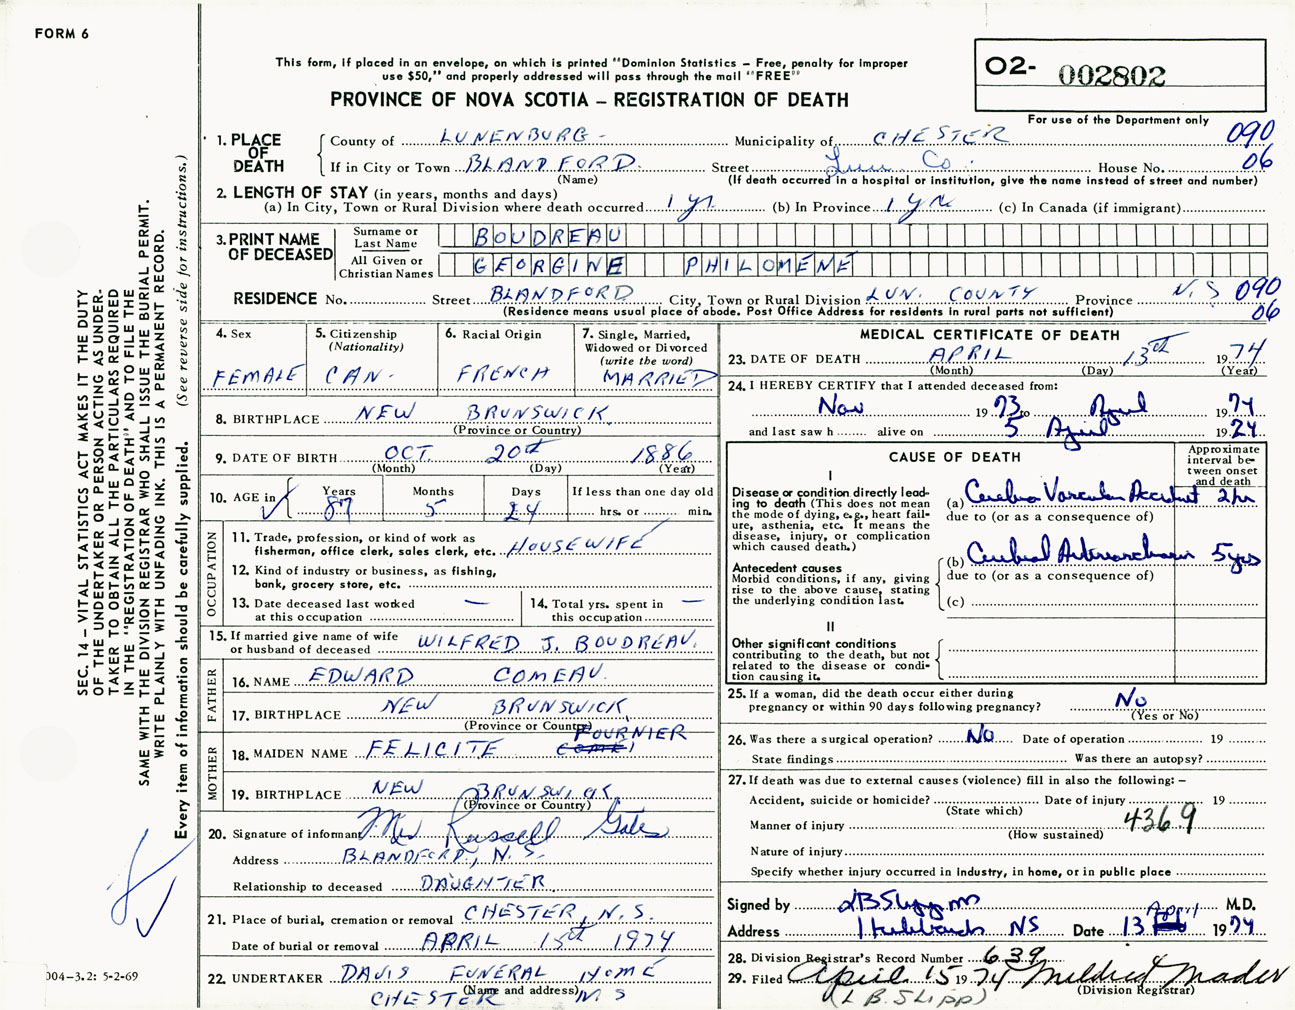 FORM 6
This form, if placed in an envelope, on which is printed "Dominion Statistics – Free, penalty for improper
use $50," and properly addressed will pass through the mail "FREE"
PROVINCE OF NOVA SCOTIA – REGISTRATION OF DEATH
02- 002802
For use of the Department only
1. PLACE OF DEATH County of LUNENBURG - Municipality of CHESTER 090
If in City or Town BLANDFORD. Street Lun Co. House No. 06
(Name) (If death occurred in a hospital or institution, give the name instead of street and number)
2. LENGTH OF STAY (in years, months and days)
(a) In City, Town or Rural Division where death occurred 1 yr (b) In Province 1 yr (c) In Canada (if immigrant)
3. PRINT NAME OF DECEASED Surname or Last Name BOUDREAU
All Given or Christian Names GEORGINE PHILOMENE
RESIDENCE No. Street BLANDFORD City, Town or Rural Division LUN. COUNTY Province N.S 090
(Residence means usual place of abode. Post Office Address for residents in rural parts not sufficient) 06
4. Sex FEMALE
5. Citizenship (Nationality) CAN.
6. Racial Origin FRENCH
7. Single, Married, Widowed or Divorced (write the word) MARRIED
8. BIRTHPLACE NEW BRUNSWICK
(Province or Country)
9. DATE OF BIRTH OCT. 20th 1886
(Month) (Day) (Year)
10. AGE in Years 87 Months 5 Days 24 If less than one day old hrs. or min.
OCCUPATION
11. Trade, profession, or kind of work as
fisherman, office clerk, sales clerk, etc. HOUSEWIFE
12. Kind of industry or business, as fishing,
bank, grocery store, etc.
13. Date deceased last worked
at this occupation —
14. Total yrs. spent in
this occupation —
15. If married give name of wife
or husband of deceased WILFRED J. BOUDREAU.
FATHER
16. NAME EDWARD COMEAU.
17. BIRTHPLACE NEW BRUNSWICK
(Province or Country)
MOTHER
18. MAIDEN NAME FELICITE FOURNIER
19. BIRTHPLACE NEW BRUNSWICK
(Province or Country)
20. Signature of informant Mrs Russell Gates
Address BLANDFORD, N.S.
Relationship to deceased DAUGHTER
21. Place of burial, cremation or removal CHESTER, N.S.
Date of burial or removal APRIL 15th 1974
22. UNDERTAKER DAVIS FUNERAL HOME
(Name and address)
CHESTER NS
MEDICAL CERTIFICATE OF DEATH
23. DATE OF DEATH APRIL 13th 1974
(Month) (Day) (Year)
24. I HEREBY CERTIFY that I attended deceased from:
Nov 1973 to April 1974
and last saw h alive on 5 April 1974
CAUSE OF DEATH
Approximate interval between onset and death
I
Disease or condition directly lead-
ing to death (This does not mean
the mode of dying, e.g., heart fail-
ure, asthenia, etc. It means the
disease, injury, or complication
which caused death.)
(a) Cerebro Vascular Accident 2 hr
due to (or as a consequence of)
Antecedent causes
Morbid conditions, if any, giving
rise to the above cause, stating
the underlying condition last.
(b) Cerebral Arteriosclerosis 5 yrs
due to (or as a consequence of)
(c)
II
Other significant conditions
contributing to the death, but not
related to the disease or condi-
tion causing it.
25. If a woman, did the death occur either during
pregnancy or within 90 days following pregnancy? No
(Yes or No)
26. Was there a surgical operation? No Date of operation 19
State findings Was there an autopsy?
27. If death was due to external causes (violence) fill in also the following: –
Accident, suicide or homicide? Date of injury 19
(State which)
Manner of injury 436.9
(How sustained)
Nature of injury
Specify whether injury occurred in Industry, in home, or in public place
Signed by LB Slipp MD M.D.
Address Hubbards NS Date 13 April 1974
28. Division Registrar's Record Number 639
29. Filed April 15 1974 Mildred Mader
(Division Registrar)
(L B. SLIPP)
SEC. 14 – VITAL STATISTICS ACT MAKES IT THE DUTY
OF THE UNDERTAKER OR PERSON ACTING AS UNDER-
TAKER TO OBTAIN ALL THE PARTICULARS REQUIRED
IN THE "REGISTRATION OF DEATH" AND TO FILE THE
SAME WITH THE DIVISION REGISTRAR WHO SHALL ISSUE THE BURIAL PERMIT.
WRITE PLAINLY WITH UNFADING INK. THIS IS A PERMANENT RECORD.
Every item of information should be carefully supplied. (See reverse side for instructions.)
004-3.2: 5-2-69